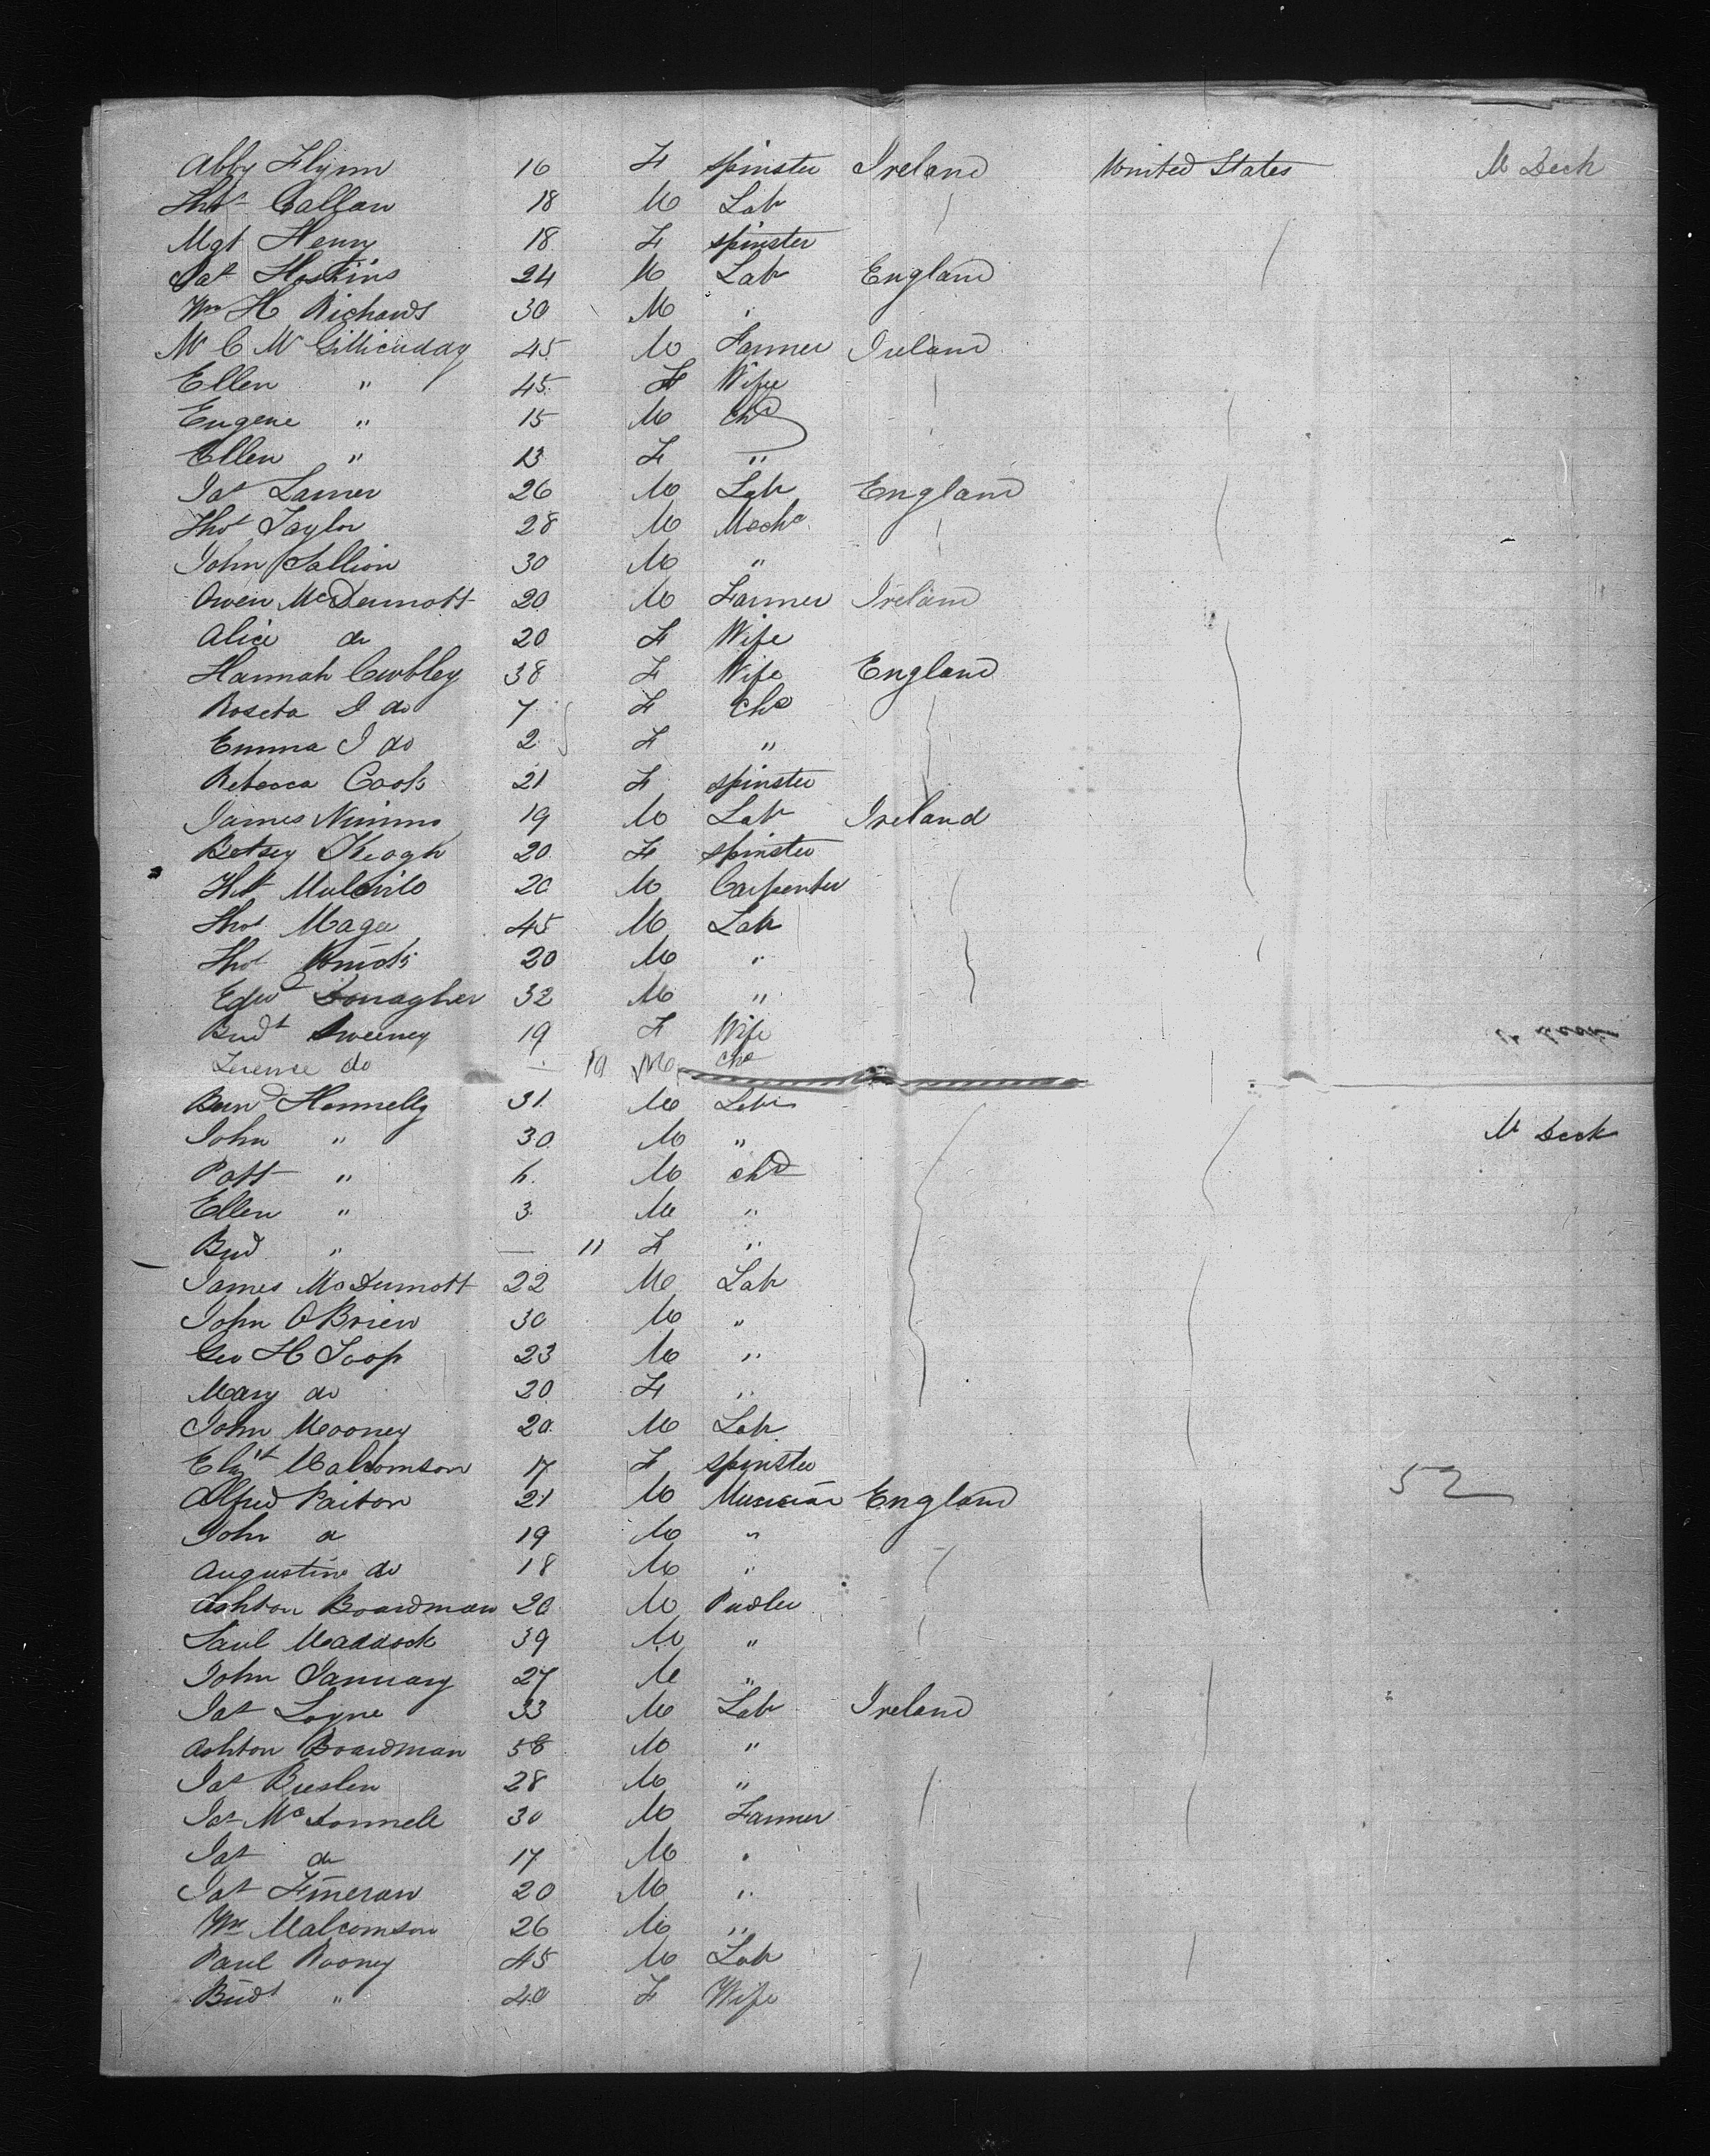 Abby Flynn 16 F spinster Ireland United States M Deck
Thos Callan 18 M Lab
Mgt Henry 18 F spinster
Pat Hoskins 24 M Lab England
Wm H Richards 30 M "
Mc C McGillicuday 45 M Farmer Ireland
Ellen " 45 F Wife
Eugene " 15 M Chd
Ellen " 13 F "
Jas Lamer 26 M Lab England
Thos Taylor 28 M Mechc
John Sallion 30 M "
Owen McDermott 20 M Farmer Ireland
Alice do 20 F Wife
Hannah Cubbley 38 F Wife England
Roseta I do 7 F Chd
Emma J do 2 F "
Rebecca Cook 21 F spinster
James Nimmo 19 M Lab Ireland
Betsey Keogh 20 F spinster
Mulchile 20 M Carpenter
Thos Magee 45 M Lab
Thos 20 M "
Edwd Donagher 32 M "
Bridt Sweeney 19 F Wife
Terence do — 10 M Chd
Bernd Hannelly 31 M Lab
John " 30 M " M Deck
Patt " 6 M chd
Ellen " 3 M "
Brid " — 11 F "
James McDermott 22 M Lab
John O'Brien 30 M "
Geo H Soop 23 M "
Mary do 20 F "
John Mooney 20 M Lab
Elizt Malcomson 17 F spinster
Alfred Paiton 21 M Musician England 52
John do 19 M "
Augustine do 18 M "
Ashton Boardman 20 M Pudler
Saul Maddock 39 M "
John January 27 M "
Jas Loyne 33 M Lab Ireland
Ashton Boardman 58 M "
Jas Breslen 28 M "
Jas McDonnell 30 M Farmer
Jas do 17 M "
Jas Fineran 20 M "
Wm Malcomson 26 M "
Paul Rooney 45 M Lab
Bridt " 40 F Wife